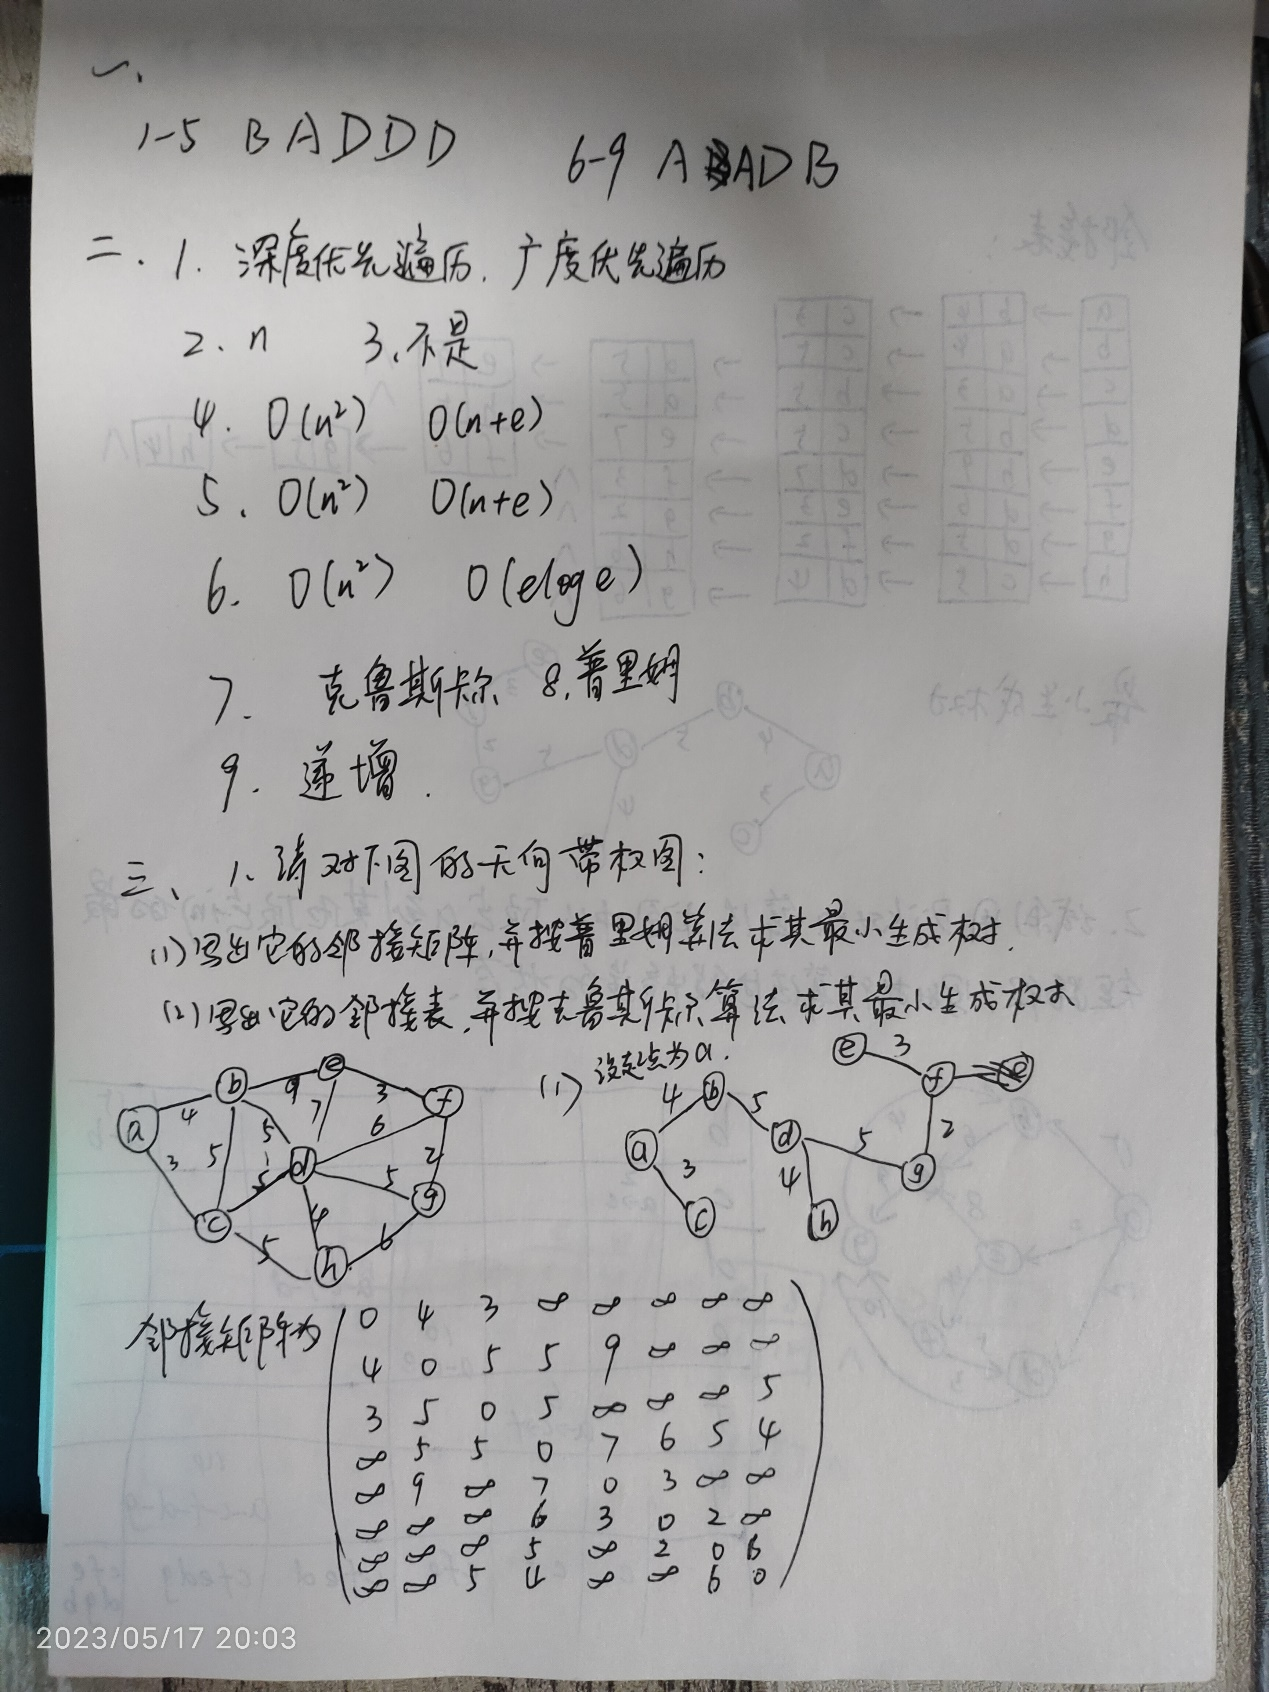 一、
1-5 B A D D D
6-9 A A D B
二、1. 深度优先遍历、广度优先遍历
2. n 3、不是
4. O(n²) O(n+e)
5. O(n²) O(n+e)
6. O(n²) O(eloge)
7. 克鲁斯卡尔 8、普里姆
9. 递增.
三、1、请对下图的无向带权图：
(1)写出它的邻接矩阵,并按普里姆算法求其最小生成树.
(2)写出它的邻接表,并按克鲁斯卡尔算法求其最小生成树
a b c d e f g h
4 3 9 5 5 5 7 3 6 5 2 4 5 6
(1) 设起点为a.
a b c d h g f e
4 3 5 4 5 2 3
邻接矩阵为
0 4 3 ∞ ∞ ∞ ∞ ∞
4 0 5 5 9 ∞ ∞ ∞
3 5 0 5 ∞ ∞ ∞ 5
∞ 5 5 0 7 6 5 4
∞ 9 ∞ 7 0 3 ∞ ∞
∞ ∞ ∞ 6 3 0 2 ∞
∞ ∞ ∞ 5 ∞ 2 0 6
∞ ∞ 5 4 ∞ ∞ 6 0
2023/05/17 20:03